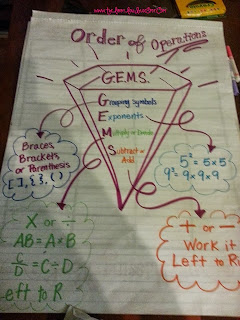 Order of Operations
G.E.M.S.
Grouping Symbols
Exponents
Multiply or Divide
Subtract or
Add
Braces,
Brackets
or Parenthesis
[ ], { }, ( )
5² = 5x5
9³ = 9x9x9
X or ÷
AB = A x B
C/D = C ÷ D
Left to R
+ or -
Work it
Left to Ri